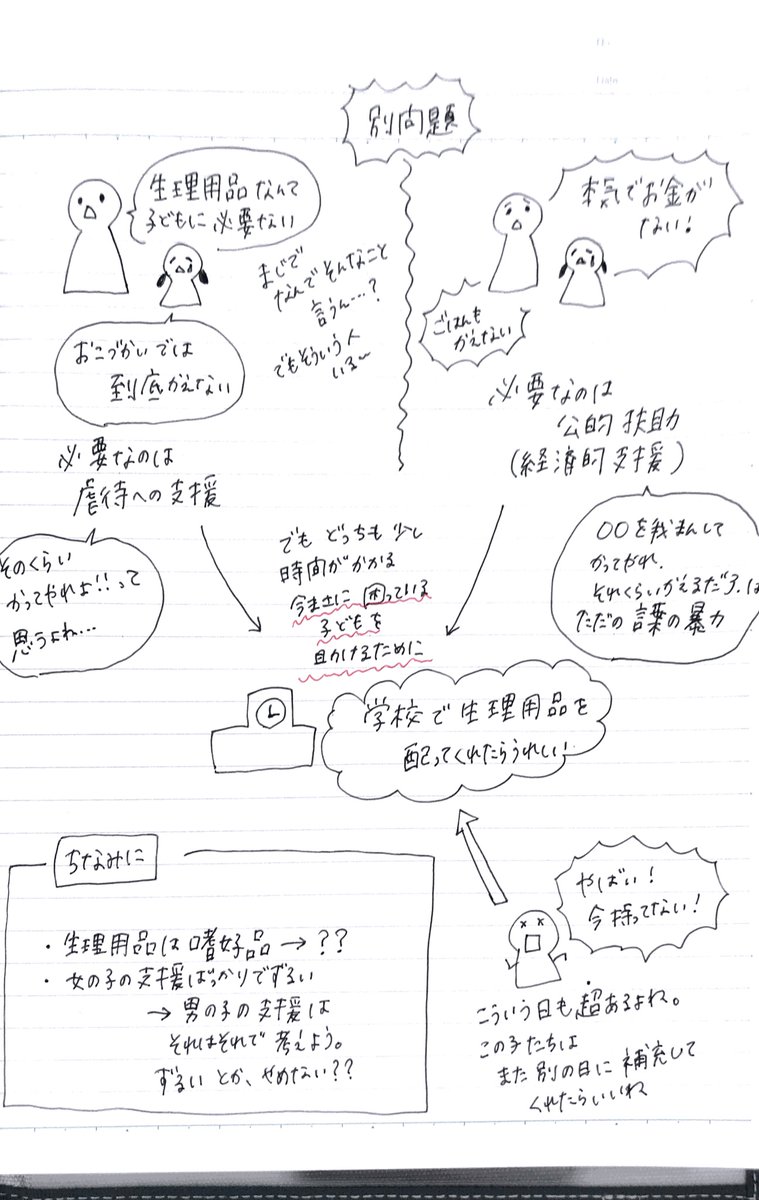 別問題
生理用品なんて
子どもに必要ない
おこづかいでは
到底かえない
まじで
なんでそんなこと
言うん…?
でもそういう人
いる〜
必要なのは
虐待への支援
そのくらい
かってやれよ!!って
思うよね…
本気でお金が
ない!
ごはんも
かえない
必要なのは
公的扶助
(経済的支援)
〇〇を我まんして
かってやれ.
それくらいかえるだろ.は
ただの言葉の暴力
でもどっちも少し
時間がかかる
今まさに困っている
子どもを
助けるために
学校で生理用品を
配ってくれたらうれしい
やばい!
今持ってない!
こういう日も超あるよね。
この子たちは
また別の日に補充して
くれたらいいね
ちなみに
・生理用品は嗜好品→??
・女の子の支援ばっかりでずるい
→男の子の支援は
それはそれで考えよう。
ずるいとか、やめない??